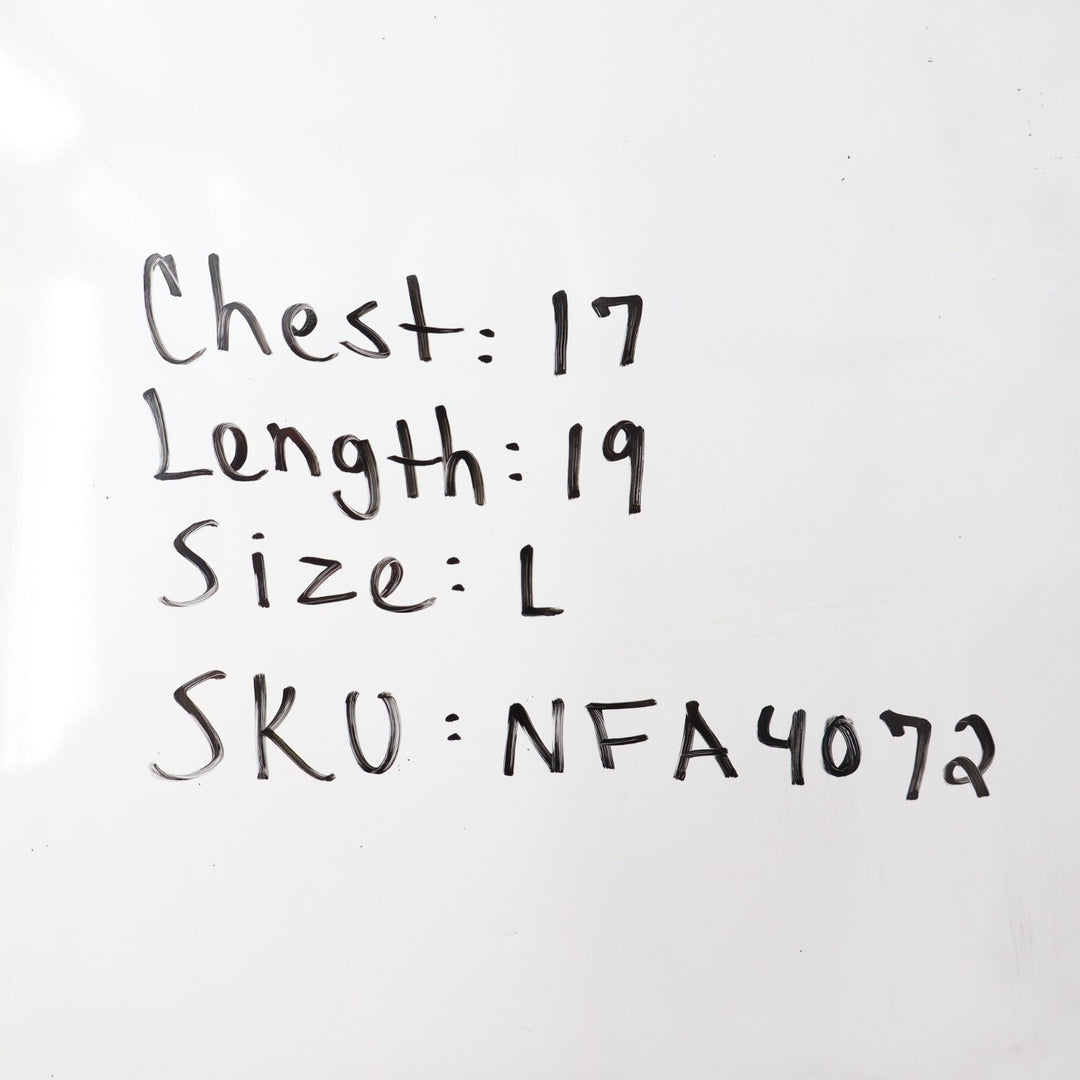 Chest: 17
Length: 19
Size: L
SKU: NFA4072